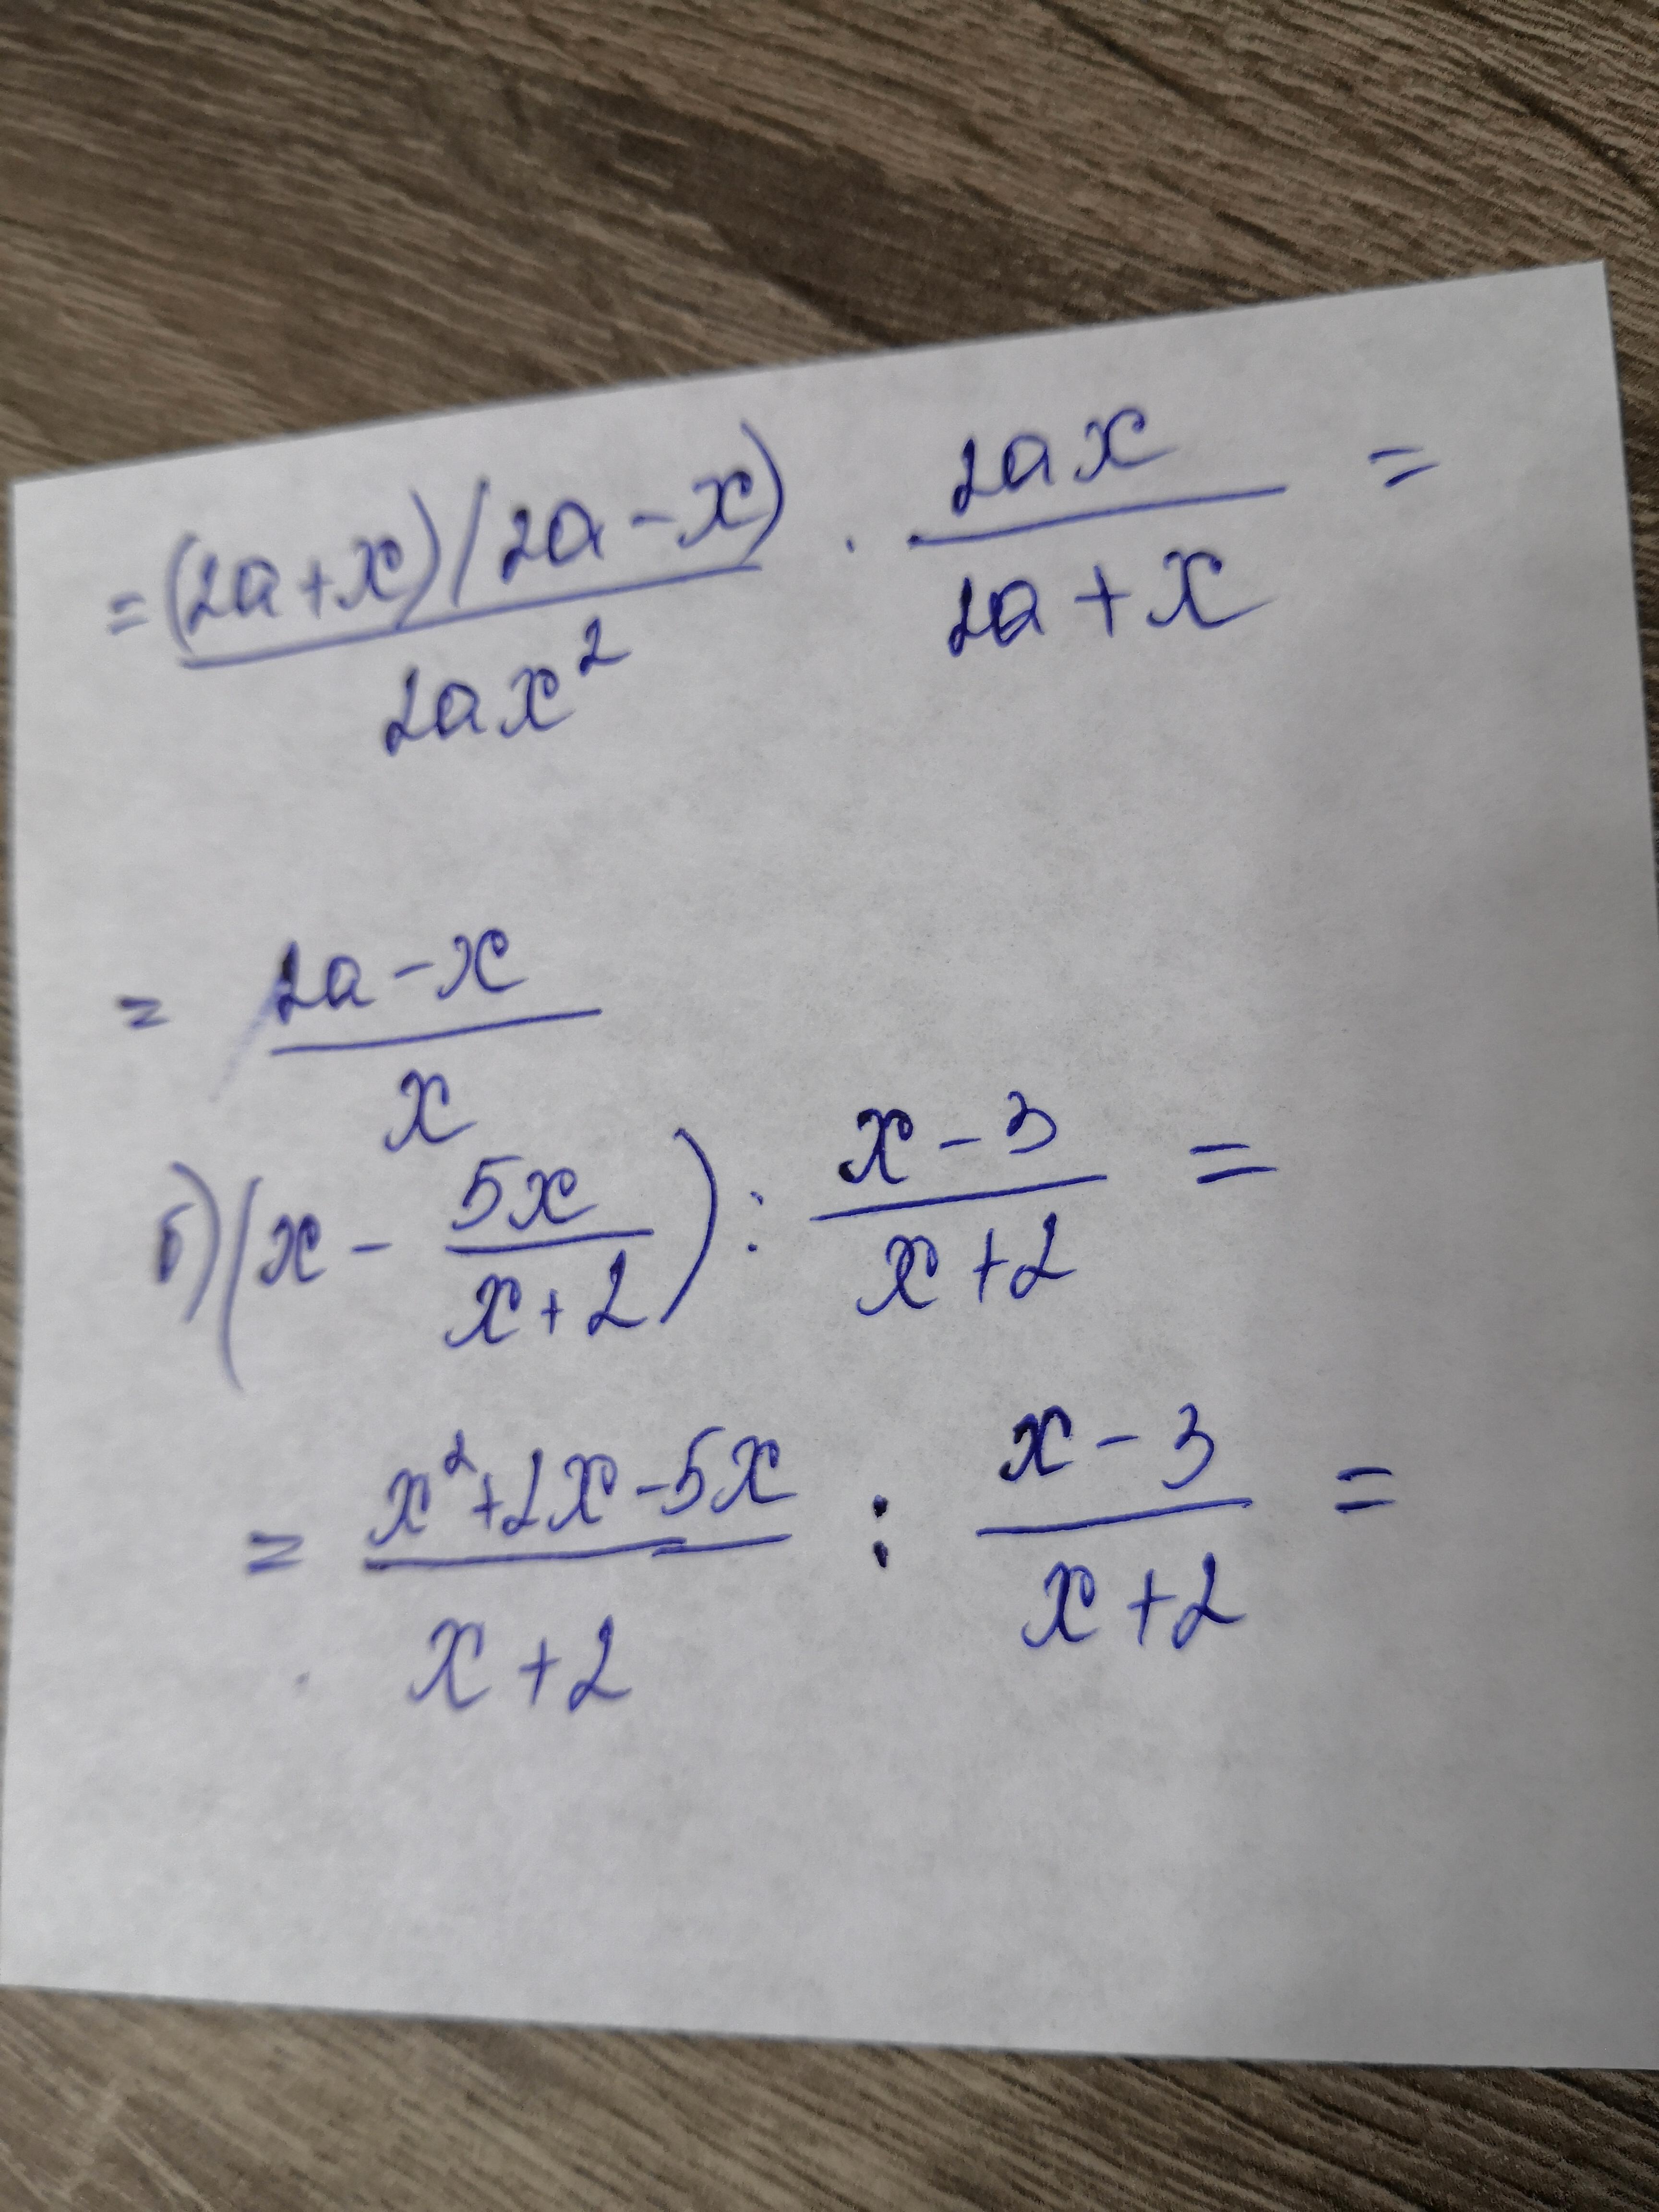 = (2a+x)(2a-x)/2ax² · 2ax/2a+x =
= 2a-x/x
б) (x - 5x/x+2) : x-3/x+2 =
= x²+2x-5x/x+2 : x-3/x+2 =